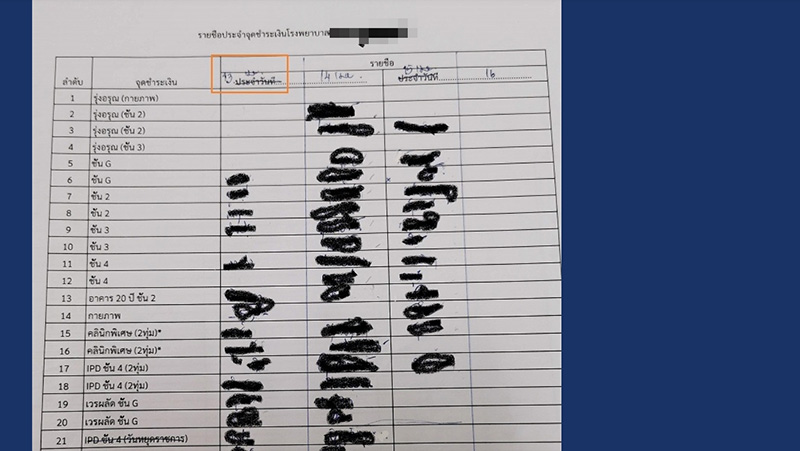 รายชื่อประจำจุดชำระเงินโรงพยาบาล
ลำดับ จุดชำระเงิน รายชื่อ
13 ประจำวันที่ 14 เมย ประจำวันที่ 16
1 รุ่งอรุณ (กายภาพ)
2 รุ่งอรุณ (ชั้น 2)
3 รุ่งอรุณ (ชั้น 2)
4 รุ่งอรุณ (ชั้น 3)
5 ชั้น G
6 ชั้น G
7 ชั้น 2
8 ชั้น 2
9 ชั้น 3
10 ชั้น 3
11 ชั้น 4
12 ชั้น 4
13 อาคาร 20 ปี ชั้น 2
14 กายภาพ
15 คลินิกพิเศษ (2ทุ่ม)*
16 คลินิกพิเศษ (2ทุ่ม)*
17 IPD ชั้น 4 (2ทุ่ม)
18 IPD ชั้น 4 (2ทุ่ม)
19 เวรผลัด ชั้น G
20 เวรผลัด ชั้น G
21 IPD ชั้น 4 (วันหยุดราชการ)